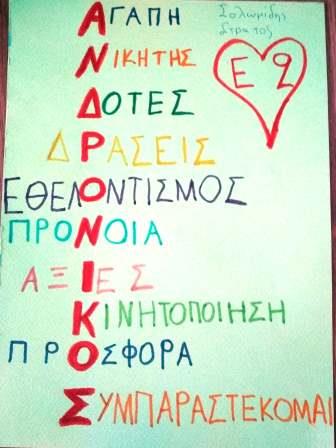 ΑΓΑΠΗ
Σολωμίδης
Στράτος
ΝΙΚΗΤΗΣ
Ε9
ΔΟΤΕΣ
ΔΡΑΣΕΙΣ
ΕΘΕΛΟΝΤΙΣΜΟΣ
ΠΡΟΝΟΙΑ
ΑΞΙΕΣ
ΚΙΝΗΤΟΠΟΙΗΣΗ
ΠΡΟΣΦΟΡΑ
ΣΥΜΠΑΡΑΣΤΕΚΟΜΑΙ